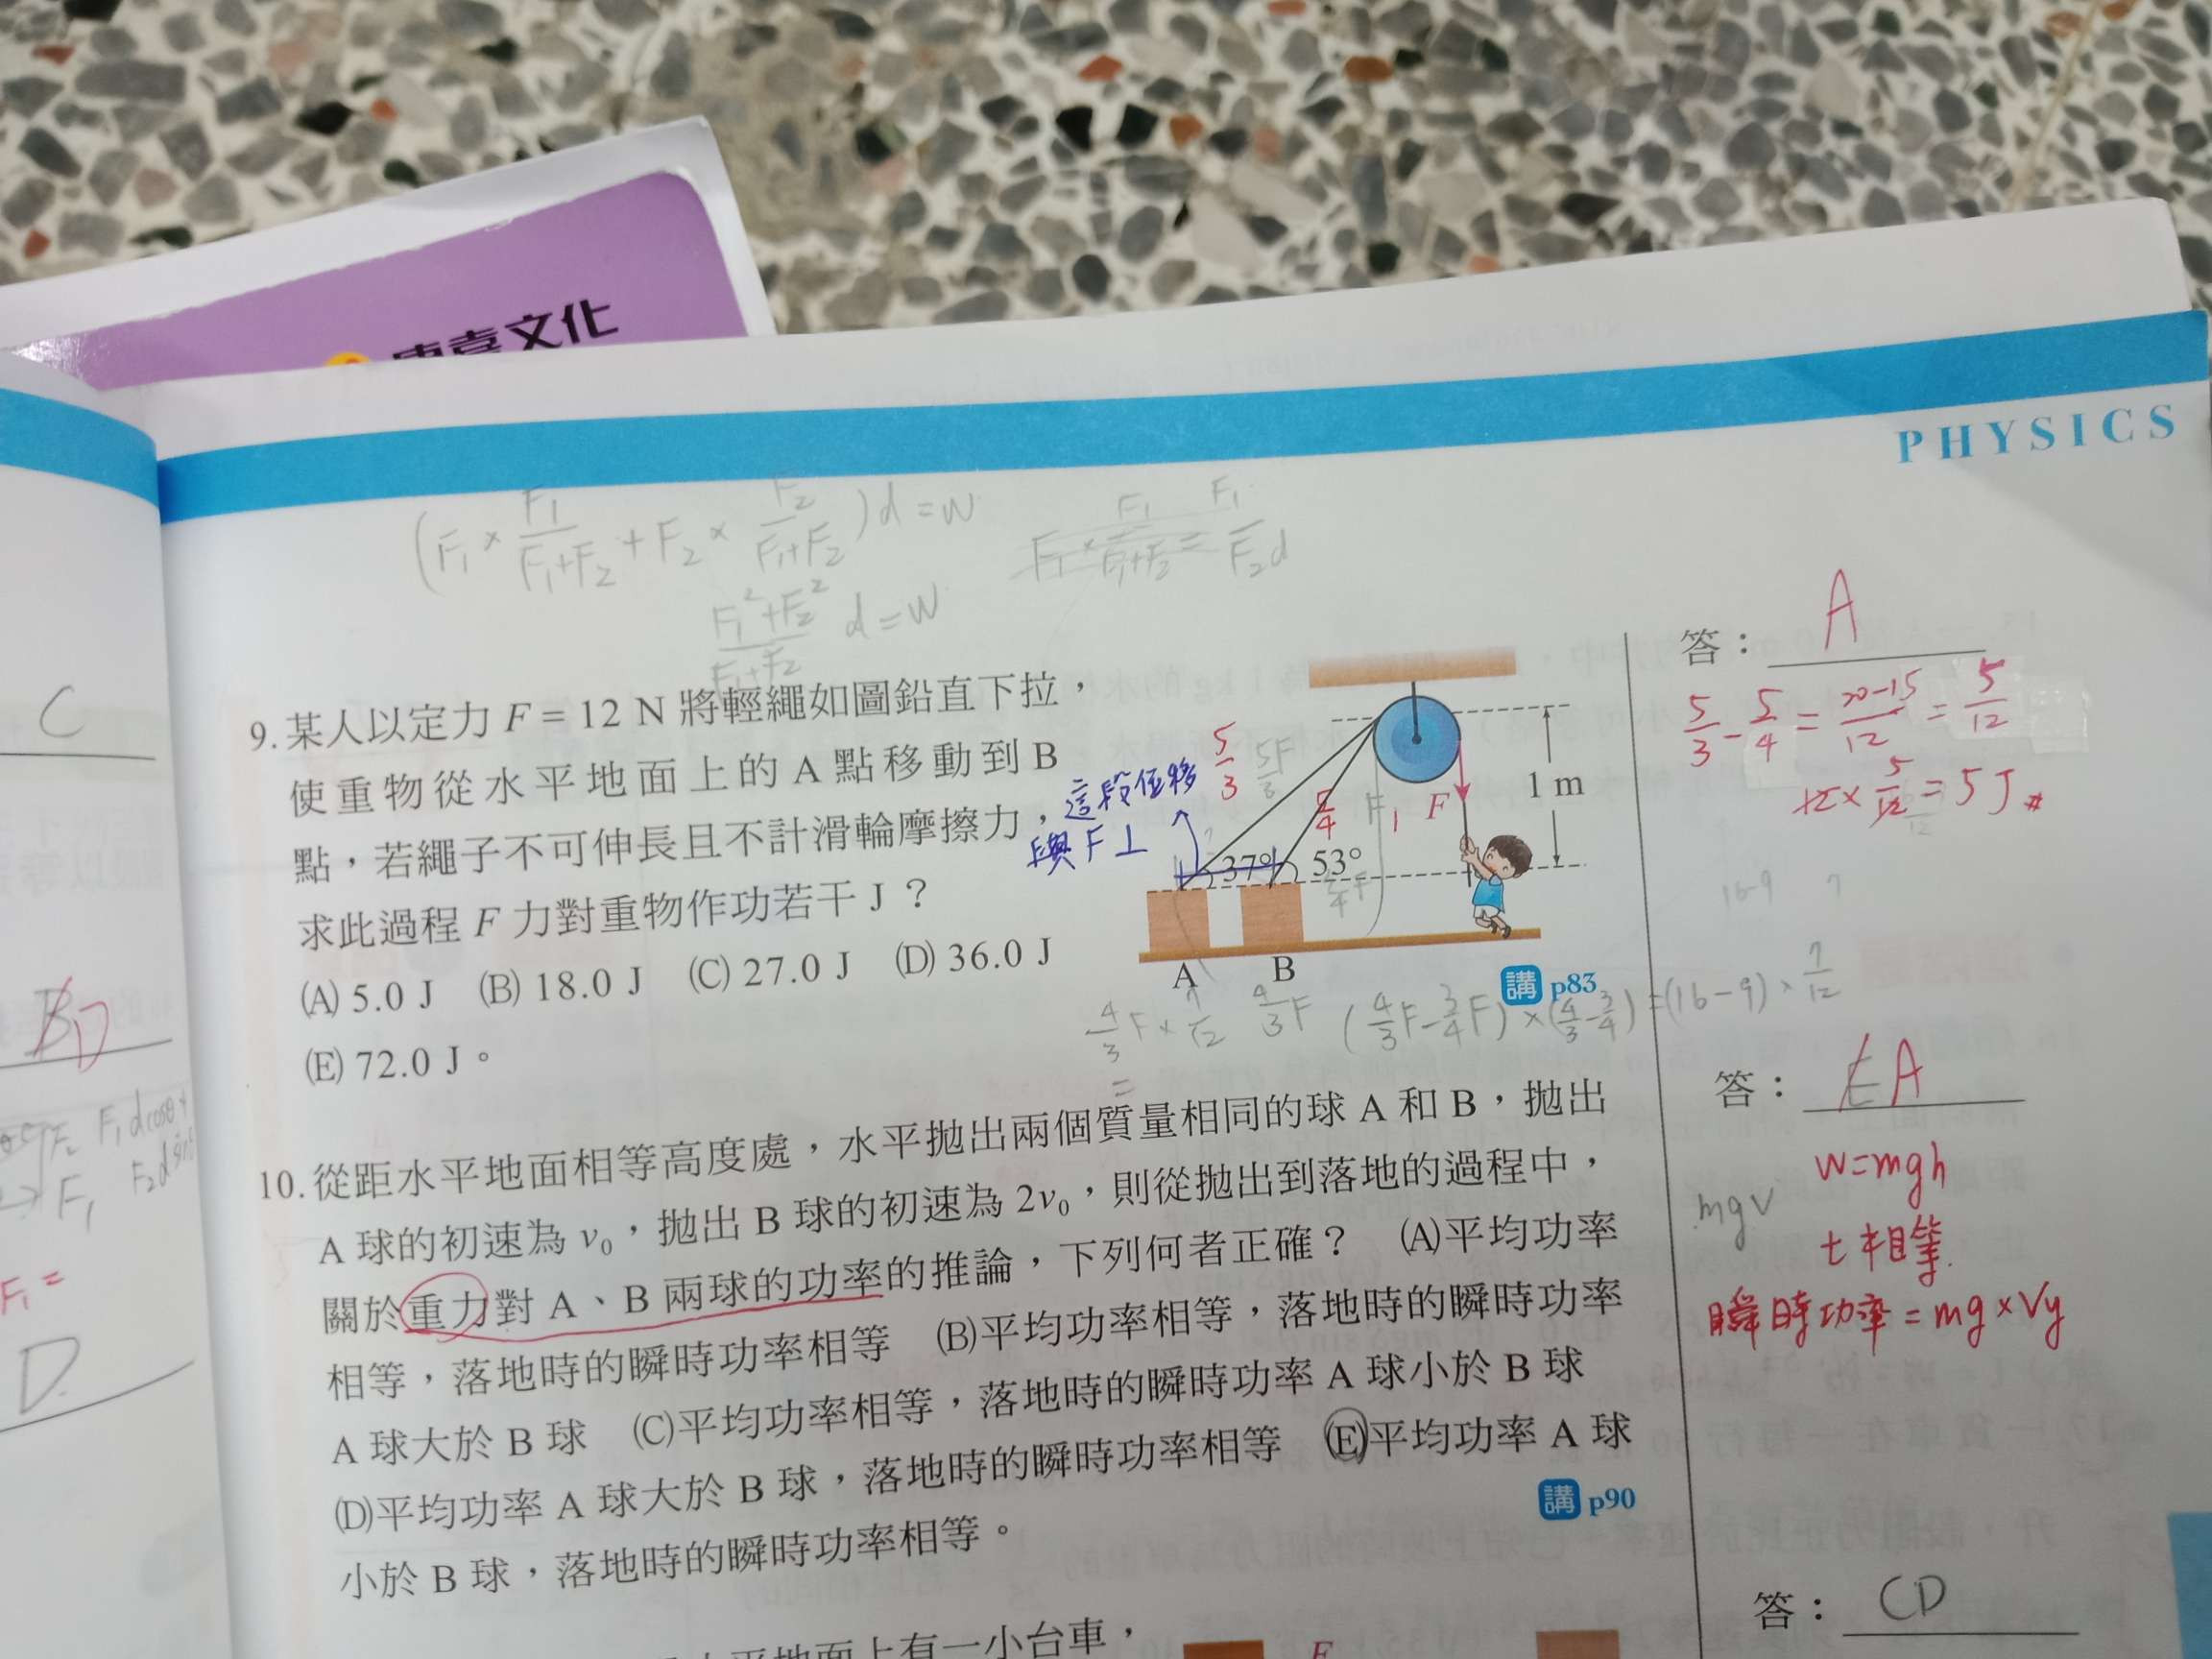 康熹文化
PHYSICS
(F₁ × F₁/(F₁+F₂) + F₂ × F₂/(F₁+F₂)) d = W
(F₁²+F₂²)/(F₁+F₂) d = W
9. 某人以定力 F = 12 N 將輕繩如圖鉛直下拉，
使重物從水平地面上的 A 點移動到 B
點，若繩子不可伸長且不計滑輪摩擦力，
求此過程 F 力對重物作功若干 J？
(A) 5.0 J (B) 18.0 J (C) 27.0 J (D) 36.0 J
(E) 72.0 J。
這段位移
與 F ⊥
5/3
5F/3
5/4
1
F
1 m
37°
53°
A
B
講 p83
4/3 F × 7/12
4/3 F
(4/3 F − 3/4 F) × (4/3 − 3/4) = (16−9) × 7/12
=
答：A
5/3 − 5/4 = (20−15)/12 = 5/12
12 × 5/12 = 5 J #
16-9
10. 從距水平地面相等高度處，水平拋出兩個質量相同的球 A 和 B，拋出
A 球的初速為 v₀，拋出 B 球的初速為 2v₀，則從拋出到落地的過程中，
關於重力對 A、B 兩球的功率的推論，下列何者正確？ (A)平均功率
相等，落地時的瞬時功率相等 (B)平均功率相等，落地時的瞬時功率
A 球大於 B 球 (C)平均功率相等，落地時的瞬時功率 A 球小於 B 球
(D)平均功率 A 球大於 B 球，落地時的瞬時功率相等 (E)平均功率 A 球
小於 B 球，落地時的瞬時功率相等。
講 p90
答：E A
W=mgh
mgv
t 相等
瞬時功率 = mg × Vy
水平地面上有一小台車，
F
答：CD
C
B D
F₁ dcosθ +
F₂ d sin
F₂
F₁
F₁ =
D